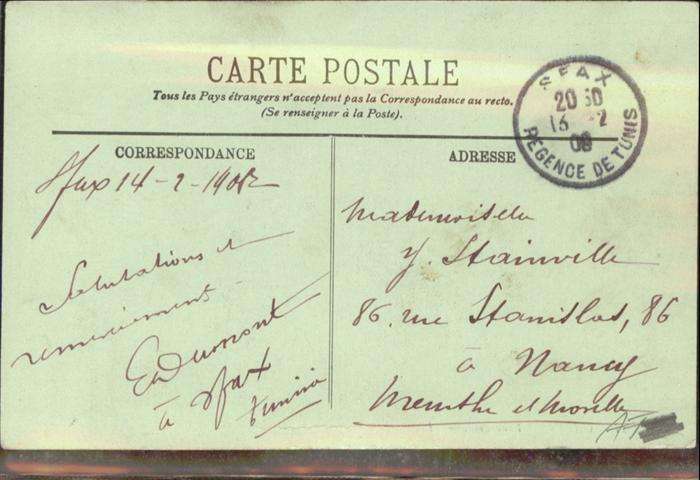 CARTE POSTALE
Tous les Pays étrangers n'acceptent pas la Correspondance au recto.
(Se renseigner à la Poste).
SFAX
20 30
13 -2
08
RÉGENCE DE TUNIS
CORRESPONDANCE
Sfax 14-2-1908
Salutations et
remerciement
Ed Dumont
à Sfax
Tunisie
ADRESSE
Mademoiselle
Y. Stainville
86, rue Stanislas, 86
à Nancy
Meurthe et Moselle